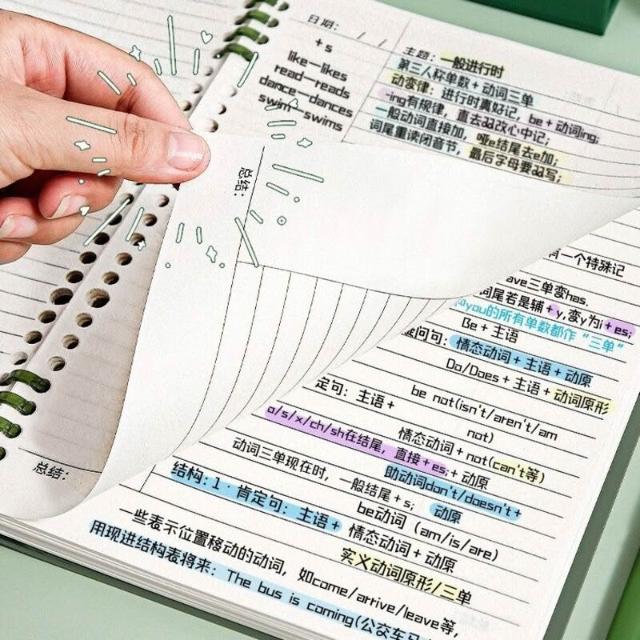 日期： / /
+s
like—likes
read—reads
dance—dances
swim—swims
主题：一般进行时
第三人称单数+动词三单
动变律：进行时真好记，be+动词ing;
-ing有规律，直去双改心中记；
一般动词直接加，哑e结尾去e加；
词尾重读闭音节，最后字母要双写；
总结：
有一个特殊记
have三单变has,
词尾若是辅+y,变y为i+es;
和you的所有单数都作“三单”
Be+主语
疑问句：情态动词+主语+动原
Do/Does+主语+动词原形
be not(isn't/aren't/am
定句：主语+ not)
情态动词+not(can't等)
o/s/x/ch/sh在结尾，直接+es;+动原
助动词don't/doesn't+
动词三单现在时，一般结尾+s; 动原
be动词 (am/is/are)
结构：1·肯定句：主语+ 情态动词+动原
实义动词原形/三单
一些表示位置移动的动词，如come/arrive/leave等，
用现进结构表将来：The bus is coming(公交车
总结：